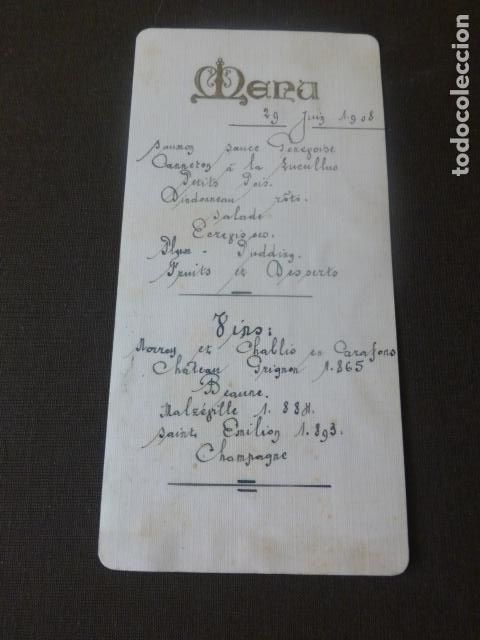 Menu
29 Juin 1.908
Saumon sauce Genevoise
Canneton à la Lucullus
Petits Pois.
Dindonneau rôti.
Salade
Ecrevisses.
Plum - Pudding.
Fruits et Desserts
Vins:
Norroy et Chablis en Carafons
Château Grignon 1.865
Beaune.
Malzéville 1.884.
Saint Emilion 1.893.
Champagne
todocoleccion